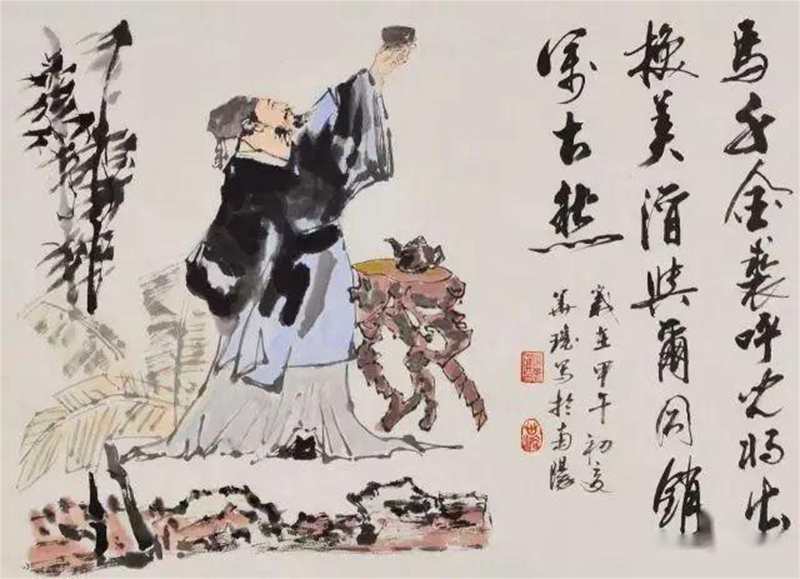 馬千金裘呼兒將出
換美酒與爾同銷
萬古愁
歲在甲午初夏
寫於南陽